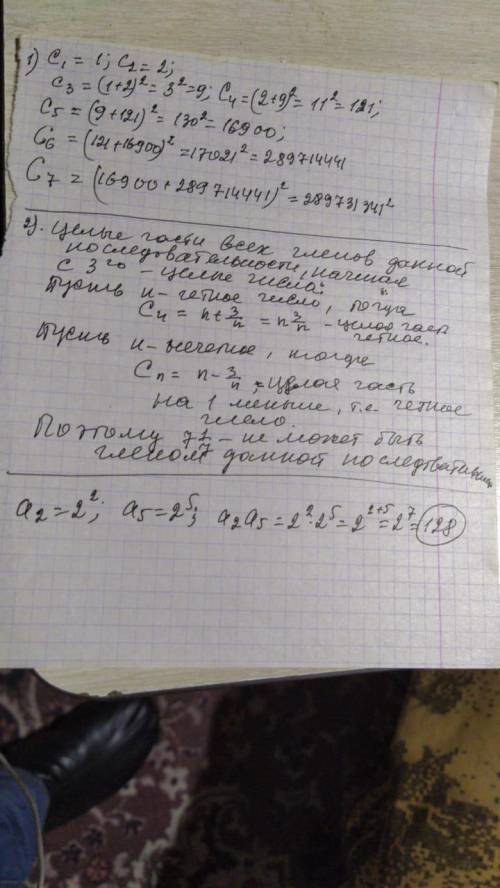 1) C₁ = 1; C₂ = 2;
C₃ = (1+2)² = 3² = 9; C₄ = (2+9)² = 11² = 121;
C₅ = (9+121)² = 130² = 16900;
C₆ = (121+16900)² = 17021² = 289714441
C₇ = (16900+289714441)² = 289731341²
2). Целые части всех членов данной
последовательности, начиная
с 3го - целые числа:
Пусть n - четное число, тогда
Cₙ = n+3/n = n 3/n - целое част
четное.
Пусть n - нечетное, тогда
Cₙ = n - 3/n, целая часть
на 1 меньше, т.е. четное
число.
Поэтому 7 1/7 - не может быть
членом данной последовательн
a₂ = 2²; a₅ = 2⁵; a₂a₅ = 2²·2⁵ = 2²⁺⁵ = 2⁷ = 128